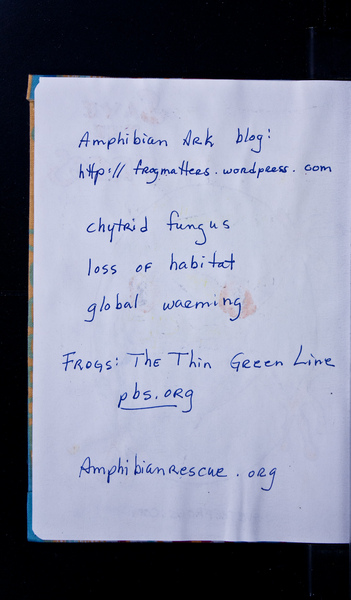 Amphibian Ark blog:
http://frogmatters.wordpress.com
chytrid fungus
loss of habitat
global warming
FROGS: The Thin Green Line
pbs.org
Amphibianrescue.org